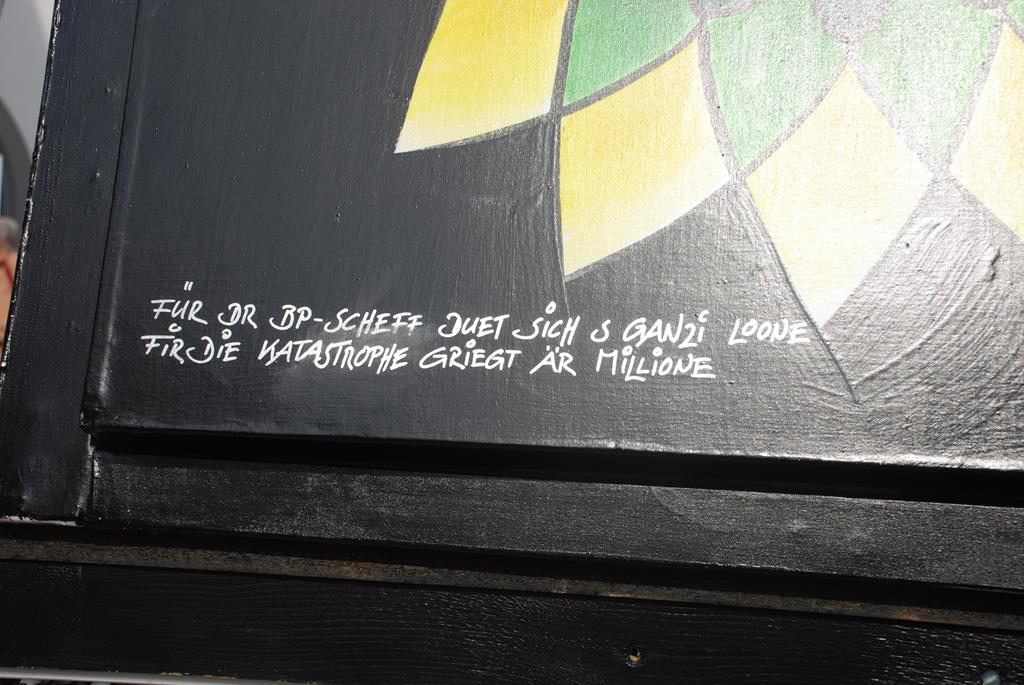 FÜR DR BP-SCHEFF DUET SICH S GANZI LOONE
FIR DIE KATASTROPHE GRIEGT ÄR MILLIONE